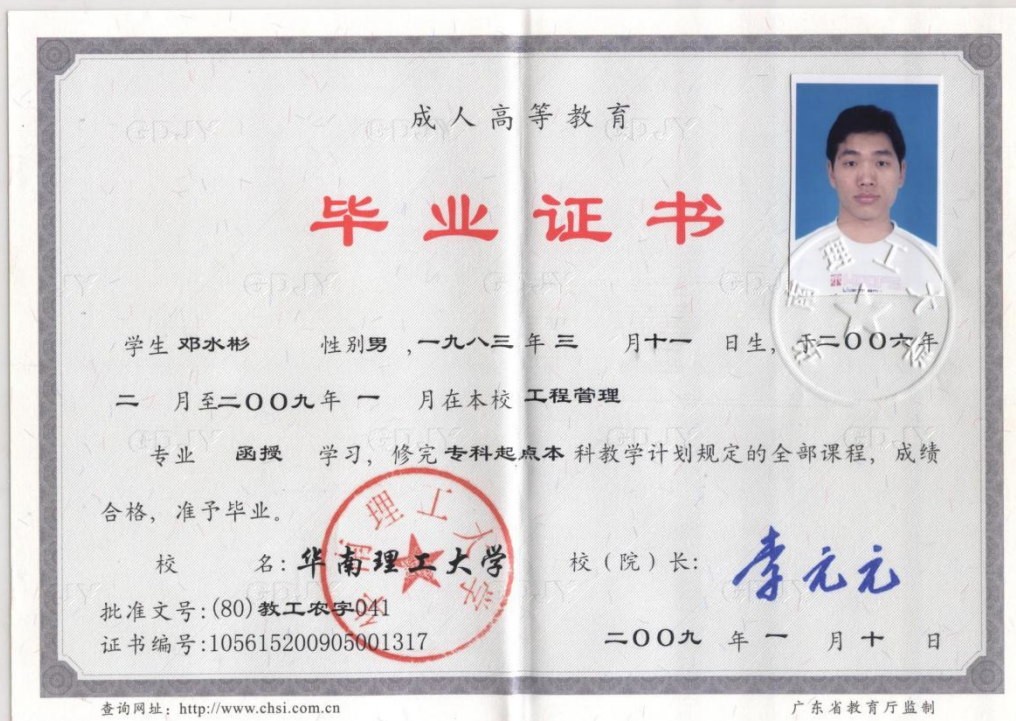 成人高等教育
毕业证书
学生 邓水彬 性别男 ,一九八三年三 月十一 日生，于二〇〇六年
二 月至二〇〇九年 一 月在本校 工程管理
专业 函授 学习，修完专科起点本科教学计划规定的全部课程，成绩
合格，准予毕业。
校 名：华南理工大学
校（院）长：李元元
批准文号:(80)教工农字041
证书编号:105615200905001317
二〇〇九 年 一 月 十 日
华南理工大学
华南理工大学
查询网址：http://www.chsi.com.cn
广东省教育厅监制